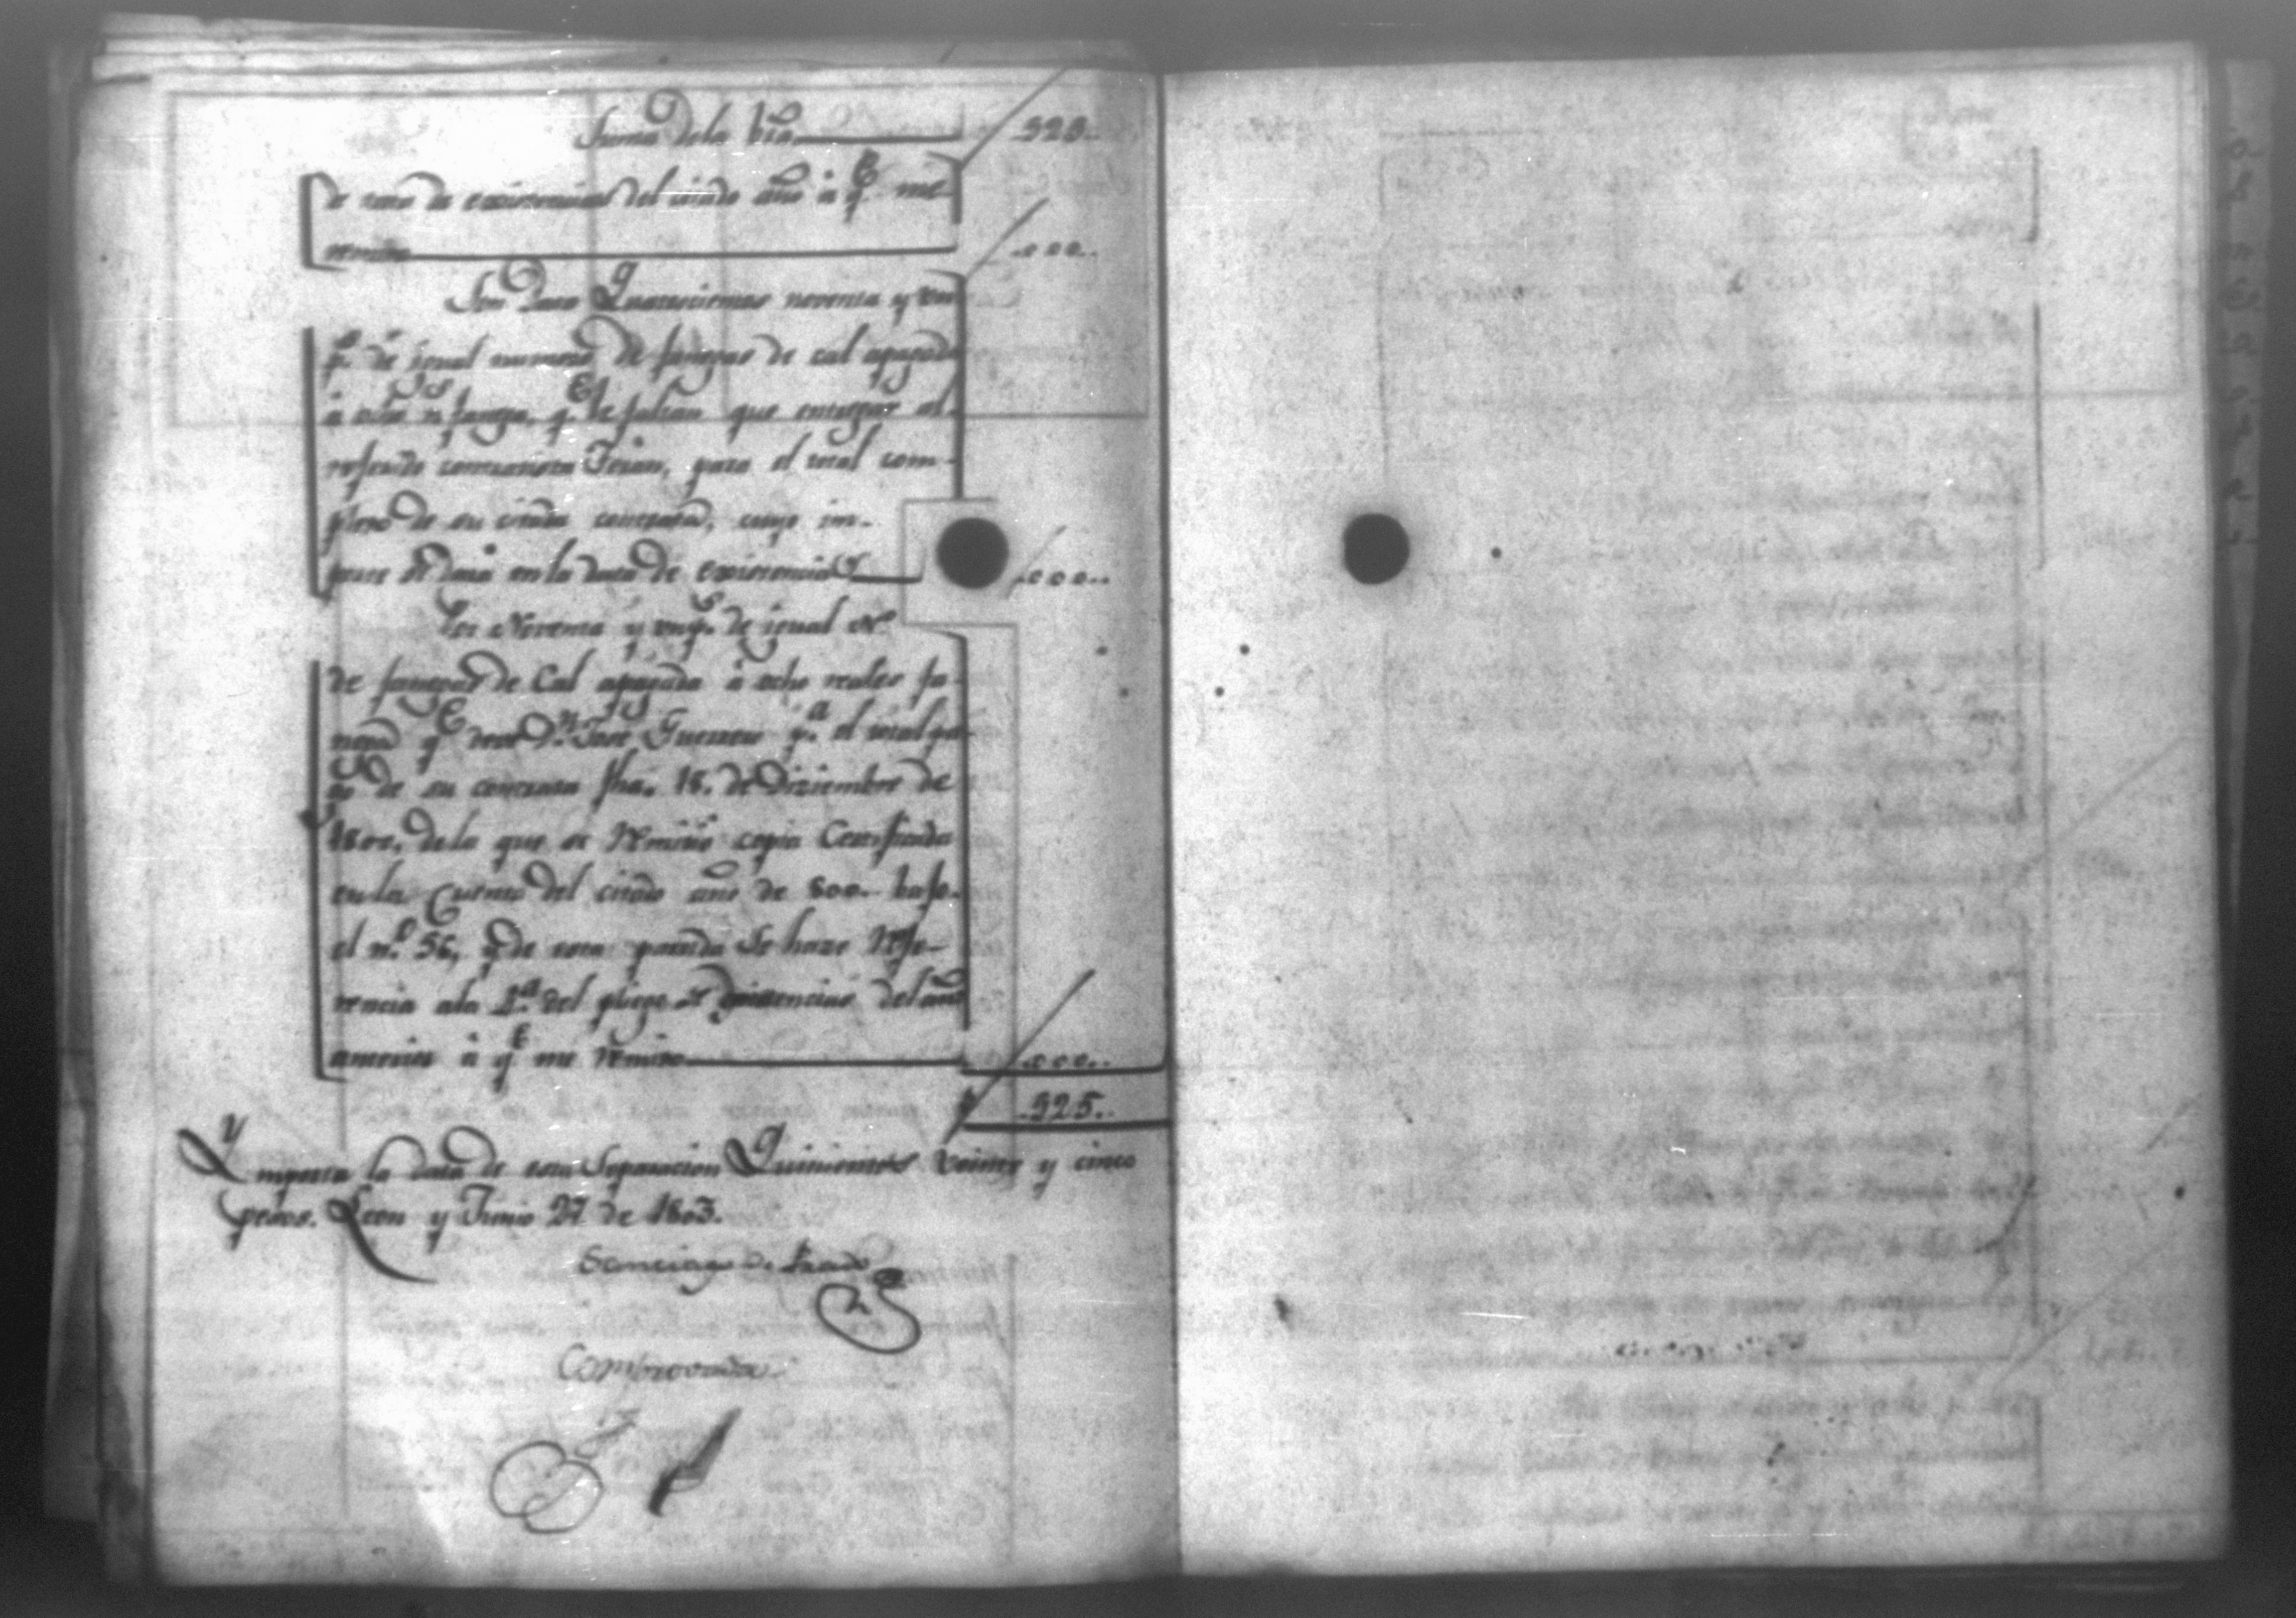 Suma dela b.ta 525..
de data de existencias del citado año à q.e me
remito ..000..
Son Data Quatrocientos noventa y un
p.s de igual numero de fanegas de cal apagada
à ocho r.s fanega, q.e le faltan que entregar al
referido contratista para el total com-
pleto de su citada contrata, cuyo im-
porte se data en la data de existencias ..000..
Los Noventa y un p.s de igual N.o
de fanegas de Cal apagada à ocho reales fa-
nega q.e deve D.n José Guerrero p.a el total pa-
go de su contrata fha. 15. de Diziembre de
1800. dela que se remitió copia Certificada
en la Cuenta del citado año de 800.. bajo
el n.o 56, q.e de esta partida se haze refe-
rencia ala 2.a del pliego de existencias del año
anterior à q.e me remito ..000..
525..
Ymporta la data de esta Separacion Quinientos veinte y cinco
pesos. Leon y Junio 27 de 1803.
Santiago de Prado
Comprovada